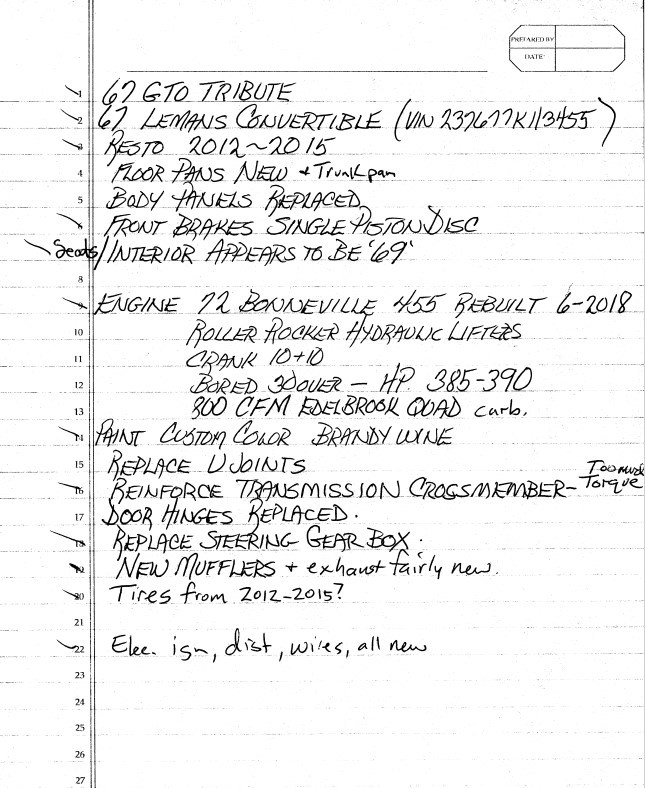 PREPARED BY
DATE
1 67 GTO TRIBUTE
2 67 LEMANS CONVERTIBLE (VIN 237677K113455)
3 RESTO 2012~2015
4 FLOOR PANS NEW + Trunk pan
5 BODY PANELS REPLACED
6 FRONT BRAKES SINGLE PISTON DISC
Seats/INTERIOR APPEARS TO BE '69'
8
9 ENGINE 72 BONNEVILLE 455 REBUILT 6-2018
10 ROLLER ROCKER HYDRAULIC LIFTERS
11 CRANK 10+10
12 BORED 30 OVER - HP 385-390
13 800 CFM EDELBROOK QUAD carb.
14 PAINT CUSTOM COLOR BRANDY WINE
15 REPLACE U JOINTS
16 REINFORCE TRANSMISSION CROSSMEMBER- Too much Torque
17 DOOR HINGES REPLACED.
18 REPLACE STEERING GEAR BOX.
19 NEW MUFFLERS + exhaust fairly new.
20 Tires from 2012-2015?
21
22 Elec. ign, dist, wires, all new
23
24
25
26
27